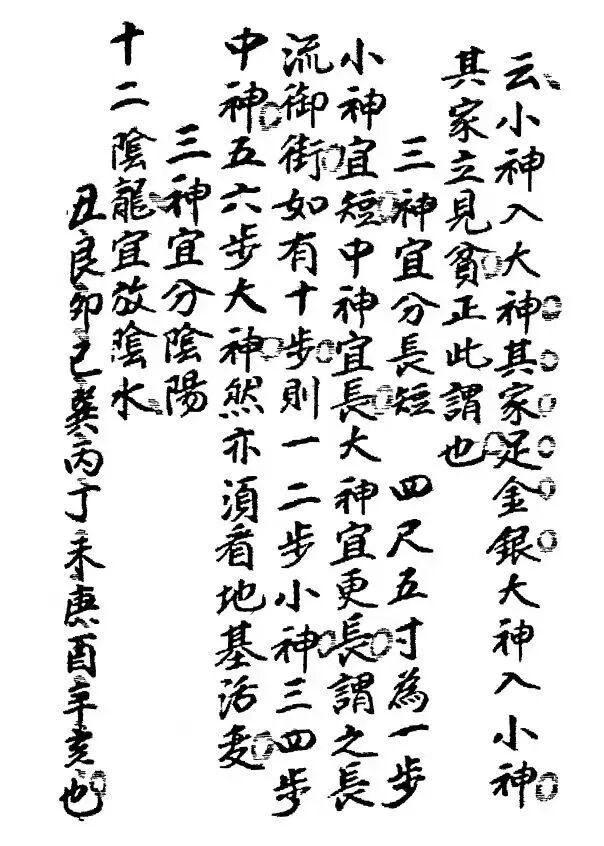 云小神入大神其家足金銀大神入小神
其家立見貧正此謂也
三神宜分長短 四尺五寸為一步
小神宜短中神宜長大神宜更長謂之長
流御街如有十步則一二步小神三四步
中神五六步大神然亦須看地基活变
三神宜分陰陽
十二陰龍宜放陰水
丑艮卯巳巽丙丁未庚酉辛亥也